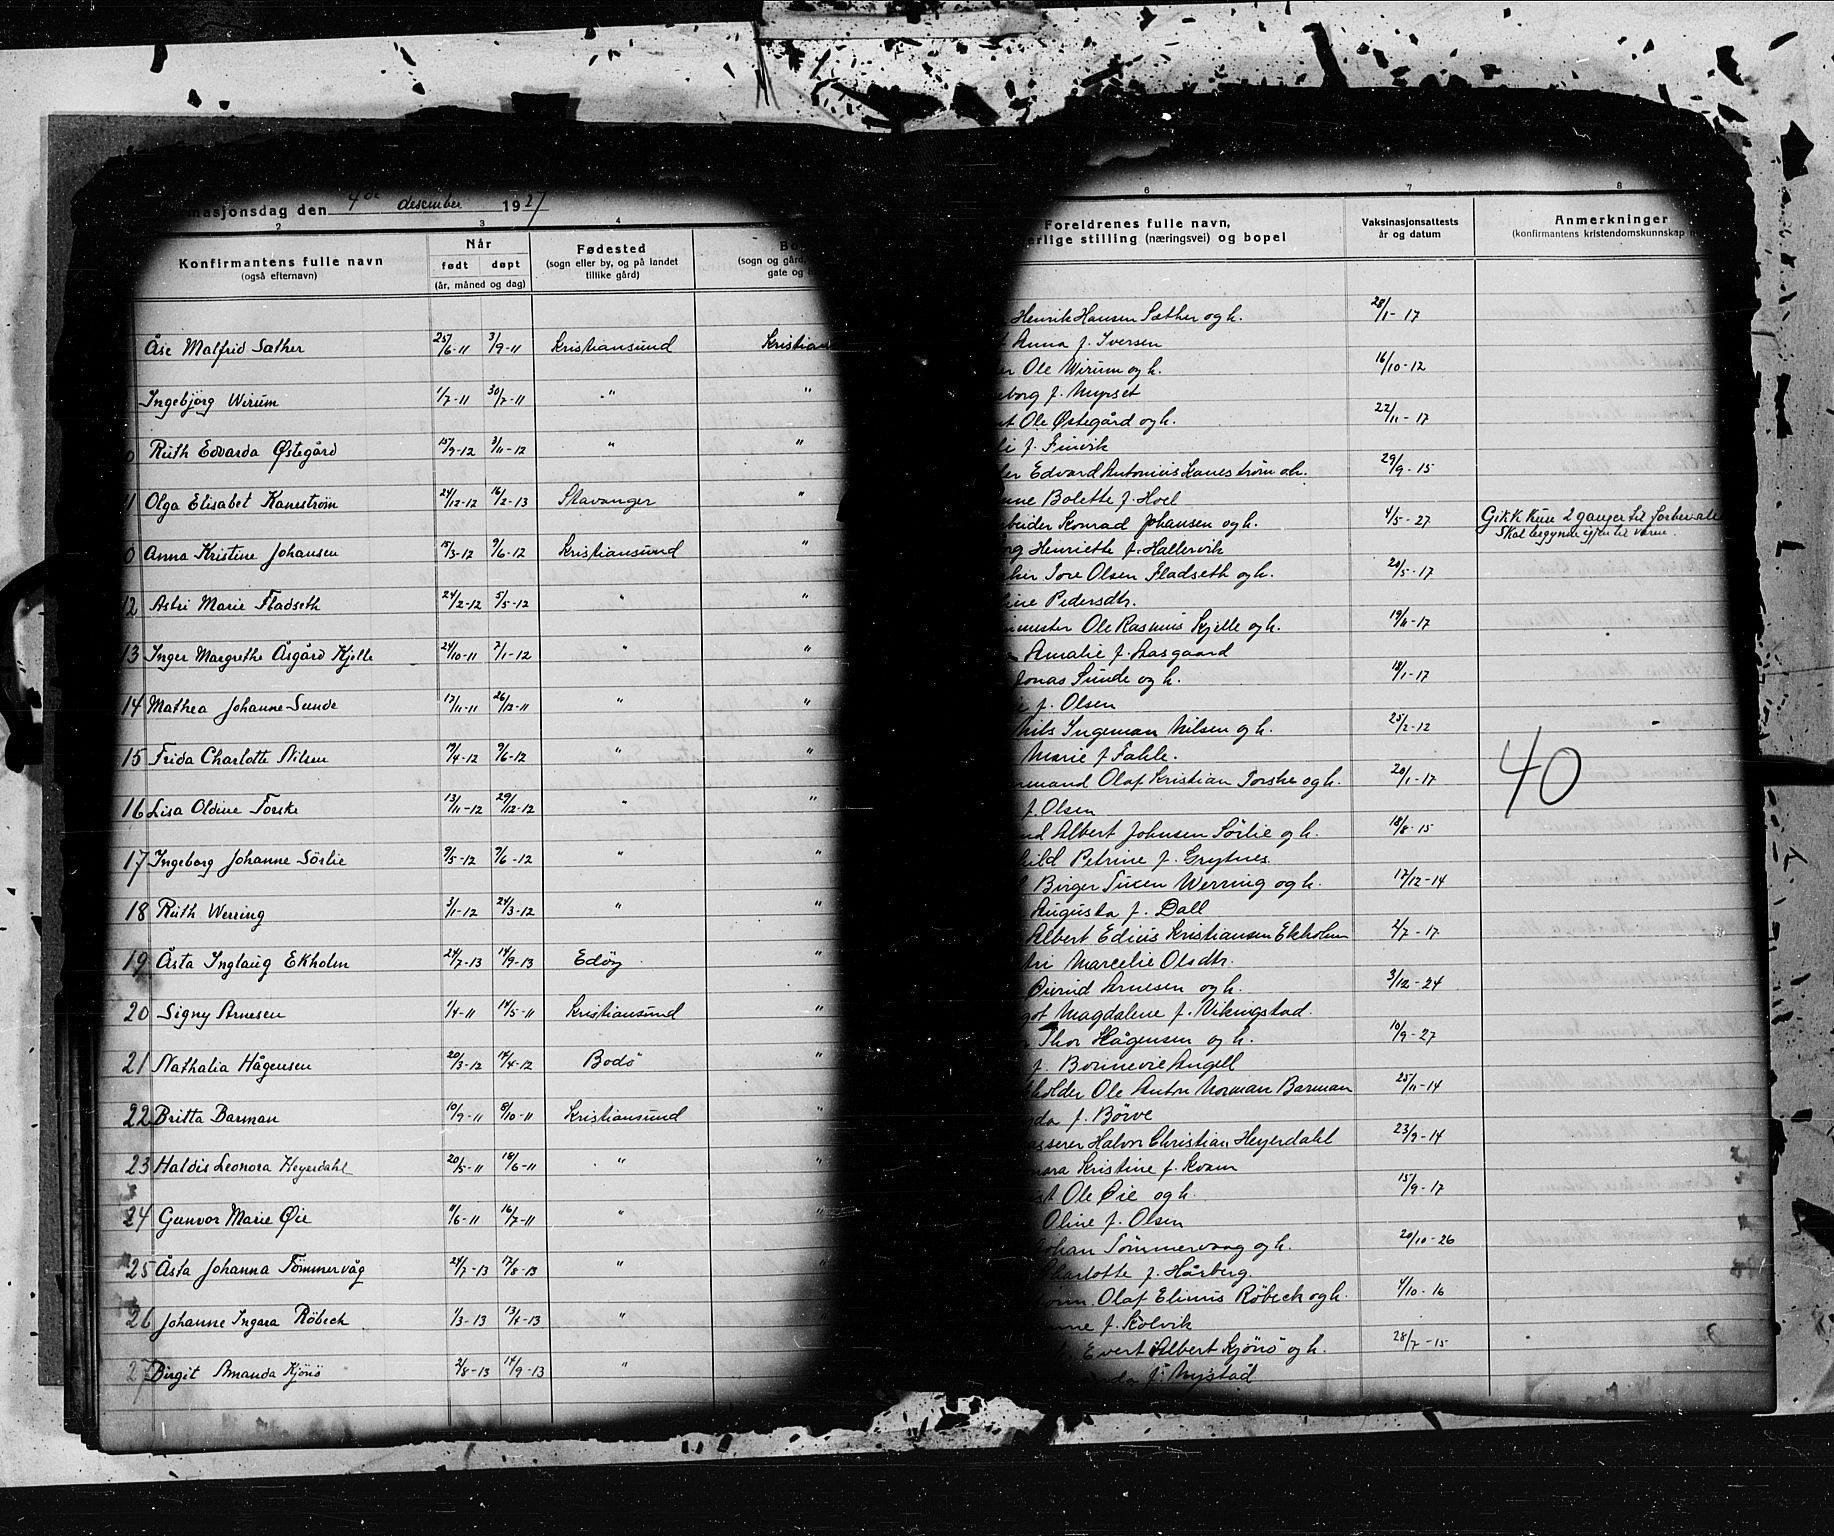 masjonsdag den 4de desember 1927
2 3 4
Konfirmantens fulle navn
(også efternavn)
Når
født døpt
(år, måned og dag)
Fødested
(sogn eller by, og på landet
tillike gård)
Bo
(sogn og gård,
gate og
Åse Malfrid Sæther 25/6-11 3/9-11 Kristiansund Kristian
Ingebjørg Wirum 1/7-11 30/7-11 " "
Ruth Edvarda Østegård 15/9-12 3/11-12 " "
11 Olga Elisabet Kanestrøm 24/12-12 16/2-13 Stavanger "
0 Anna Kristine Johansen 15/3-12 9/6-12 Kristiansund "
12 Astri Marie Fladseth 24/2-12 5/5-12 " "
13 Inger Margrethe Åsgård Kjelle 24/10-11 7/1-12 " "
14 Mathea Johanne Sunde 17/11-11 26/12-11 " "
15 Frida Charlotte Nilsen 19/4-12 9/6-12 " "
16 Lisa Oldine Torske 13/11-12 29/12-12 " "
17 Ingeborg Johanne Sörlie 9/5-12 9/6-12 " "
18 Ruth Werring 3/1-12 24/3-12 " "
19 Åsta Inglaug Ekholm 24/7-13 14/9-13 Edöy "
20 Signy Arnesen 1/4-11 14/5-11 Kristiansund "
21 Nathalia Hågensen 20/3-12 14/4-12 Bodö "
22 Britta Barman 10/9-11 8/10-11 Kristiansund "
23 Haldis Leonora Heyerdahl 20/5-11 18/6-11 " "
24 Gunvor Marie Øie 9/6-11 16/7-11 " "
25 Åsta Johanna Tömmervåg 24/7-13 17/8-13 " "
26 Johanne Ingara Röbeck 1/3-13 13/4-13 "
27 Birgit Amanda Kjönö 2/8-13 14/9-13 "
6 7 8
Foreldrenes fulle navn,
erlige stilling (næringsvei) og bopel
Vaksinasjonsattests
år og datum
Anmerkninger
(konfirmantens kristendomskunnskap
Henrik Hansen Sæther og h. 28/1-17
Anna f. Iversen
Ole Wirum og h. 16/10-12
borg f. Mypset
Ole Østegård og h. 22/11-17
f. Finvik
Edvard Antonius Kanestrøm o.h. 29/9-15
Bolette f. Hoel
arbeider Konrad Johansen og h. 4/5-27 Gikk kun 2 ganger til forberedel
Skal begynde igjen til våren.
Henriette f. Hallervik
Tore Olsen Fladseth og h. 20/5-17
Pedersdtr.
mester Ole Rasmus Kjelle og h. 19/11-17
Amalie f. Aasgaard
Jonas Sunde og h. 18/1-17
f. Olsen
Nils Ingeman Nilsen og h. 25/2-12
Marie f. Fahle.
mand Olaf Kristian Torske og h. 20/1-17
40
f. Olsen
Albert Johnsen Sörlie og h. 18/8-15
hild Petrine f. Grytnes
Birger Tucen Werring og h. 17/12-14
Augusta f. Dall
Albert Edius Kristiansen Ekholm 2/7-17
Marcelie Olsdtr.
Øivind Arnesen og h. 3/12-24
got Magdalene f. Vikingstad.
Thor Hågensen og h. 10/9-27
f. Bonnevie Angell
holder Ole Anton Norman Barman 25/11-14
f. Börve
kasserer Halvor Christian Heyerdahl 23/9-14
nora Kristine f. Kvam
Ole Øie og h. 15/9-17
Oline f. Olsen
Johan Tömmervaag og h. 20/10-26
Charlotte f. Hårberg.
Olaf Elinus Röbeck og h. 4/10-16
f. Kolvik
Evert Albert Kjönö og h. 28/7-15
f. Nystad